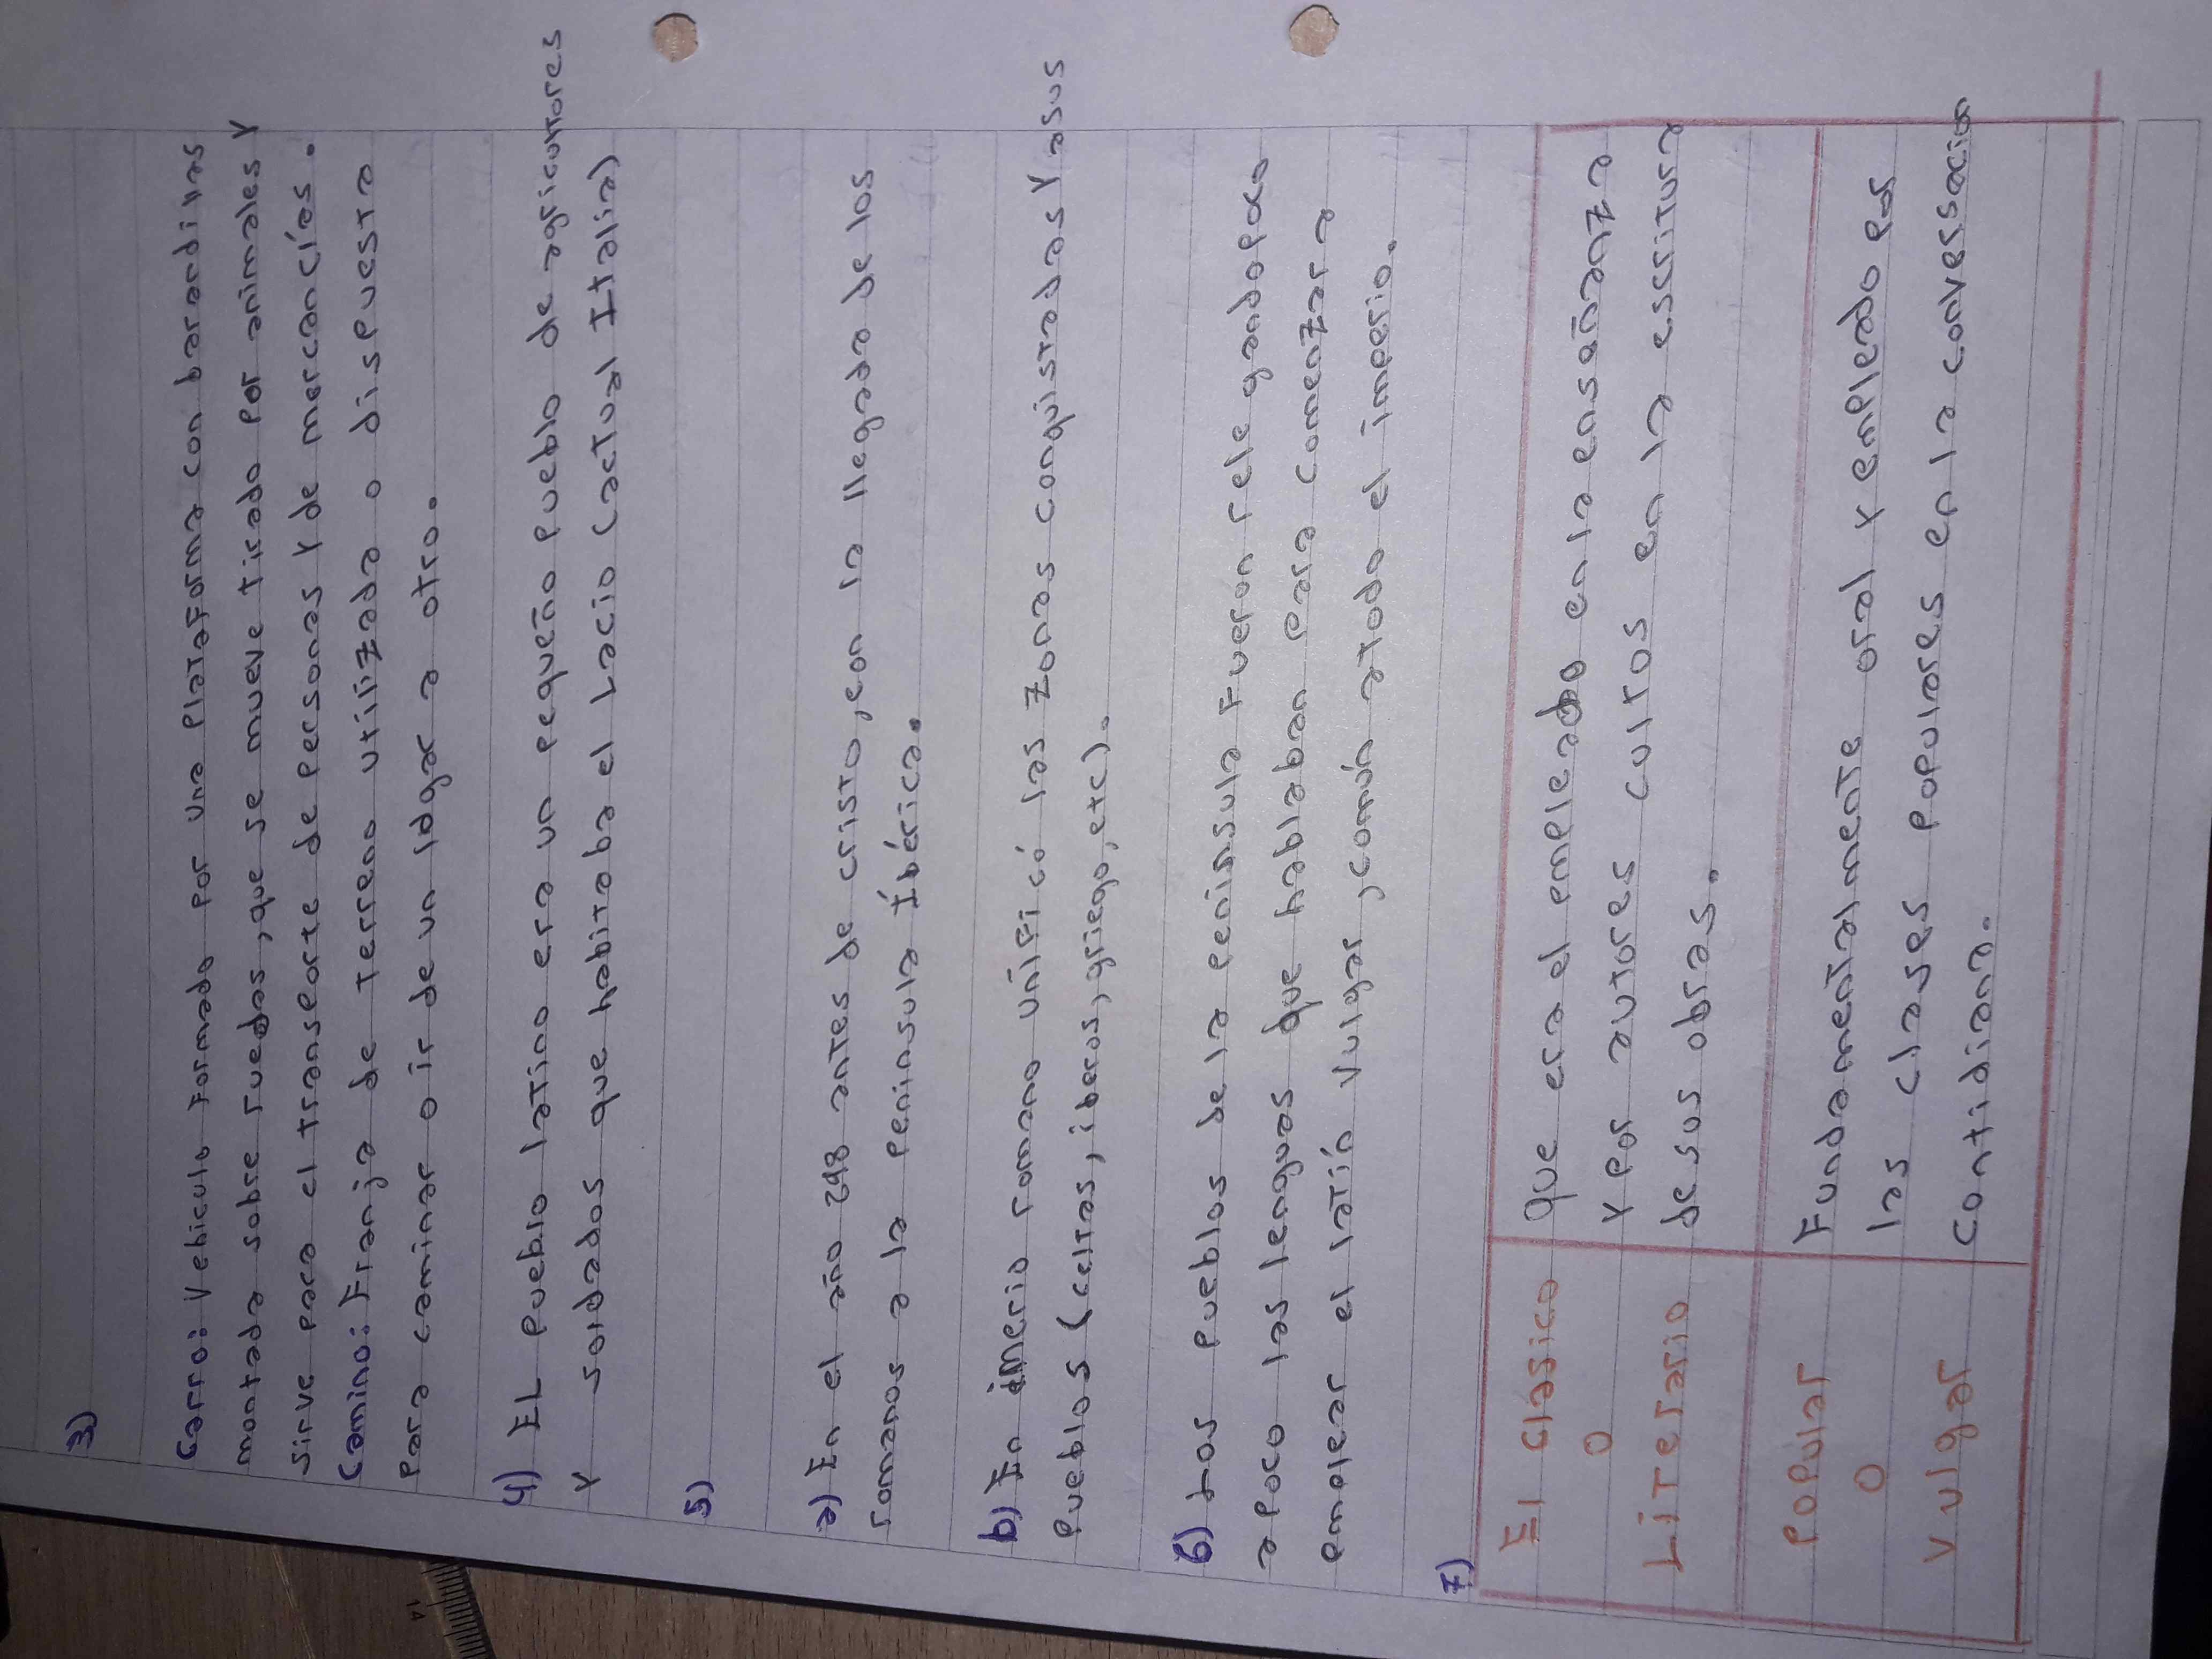 3)
Carro: Vehiculo Formado por una plataforma con barandillas
montada sobre ruedas, que se mueve tirado por animales y
sirve para el transporte de personas y de mercancías.
Camino: Franja de terreno utilizada o dispuesta
para caminar o ir de un lugar a otro.
4) EL pueblo latino era un pequeño pueblo de agricultores
y soldados que habitaba el Lacio (actual Italia)
5)
a) En el año 218 antes de cristo, con la llegada de los
romanos a la peninsula Íbérica.
b) En imperio romano unificó las zonas conquistadas y a sus
pueblos (celtas, iberos, griego, etc).
6) Los pueblos de la peninsula Fueron relegando poco
a poco las lenguas que hablaban para comenzar a
emplear el latín vulgar, común a todo el imperio.
7)
El clasico
o
Literario
Que era el empleado en la enseñanza
y por autores cultos en la escritura
de sus obras.
popular
o
vulgar
Fundamentalmente oral y empleado por
las clases populares en la conversacion
contidiana.
14